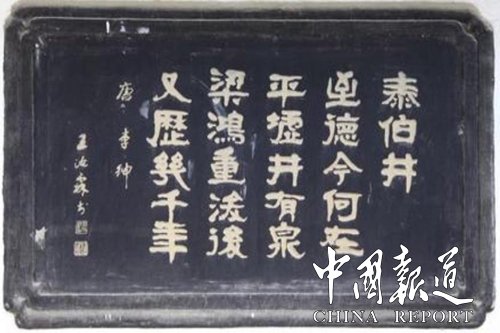 泰伯井
至德今何在
平墟井有泉
梁鴻重浚後
又歷幾千年
唐 李紳
王汝霖书
中國報道
CHINA REPORT